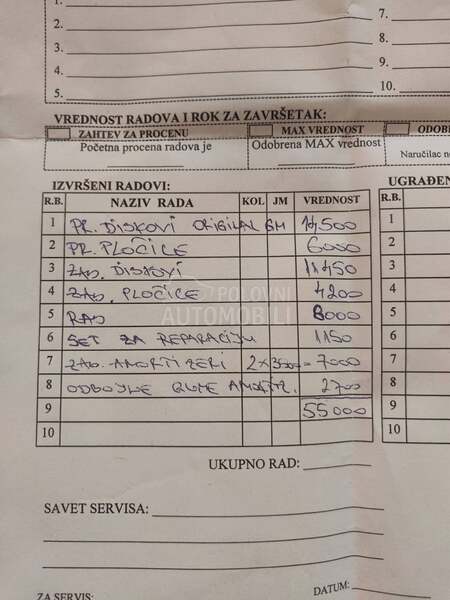 1.
2.
3.
4.
5.
7.
8.
9.
10.
VREDNOST RADOVA I ROK ZA ZAVRŠETAK:
ZAHTEV ZA PROCENU
MAX VREDNOST
ODOB
Početna procena radova je
Odobrena MAX vrednost
Naručilac n
IZVRŠENI RADOVI:
UGRAĐEN
R.B. NAZIV RADA KOL JM VREDNOST
R.B.
1 PR. DISKOVI ORIGINAL GM 14500
2 PR. PLOČICE 6000
3 ZAD. DISKOVI 11450
4 ZAD. PLOČICE 4200
5 RAD 8000
6 SET ZA REPARACIJU 1150
7 ZAD. AMORTIZERI 2x3500= 7000
8 ODBOJNE GUME AMORTIZ. 2700
9 55000
10
1
2
3
4
5
6
7
8
9
10
POLOVNI
AUTOMOBILI
UKUPNO RAD:
SAVET SERVISA:
ZA SERVIS:
DATUM: